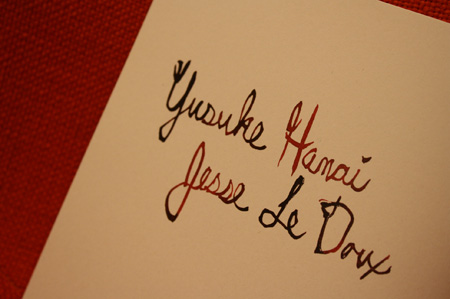 Yusuke Hanai
Jesse Le Doux